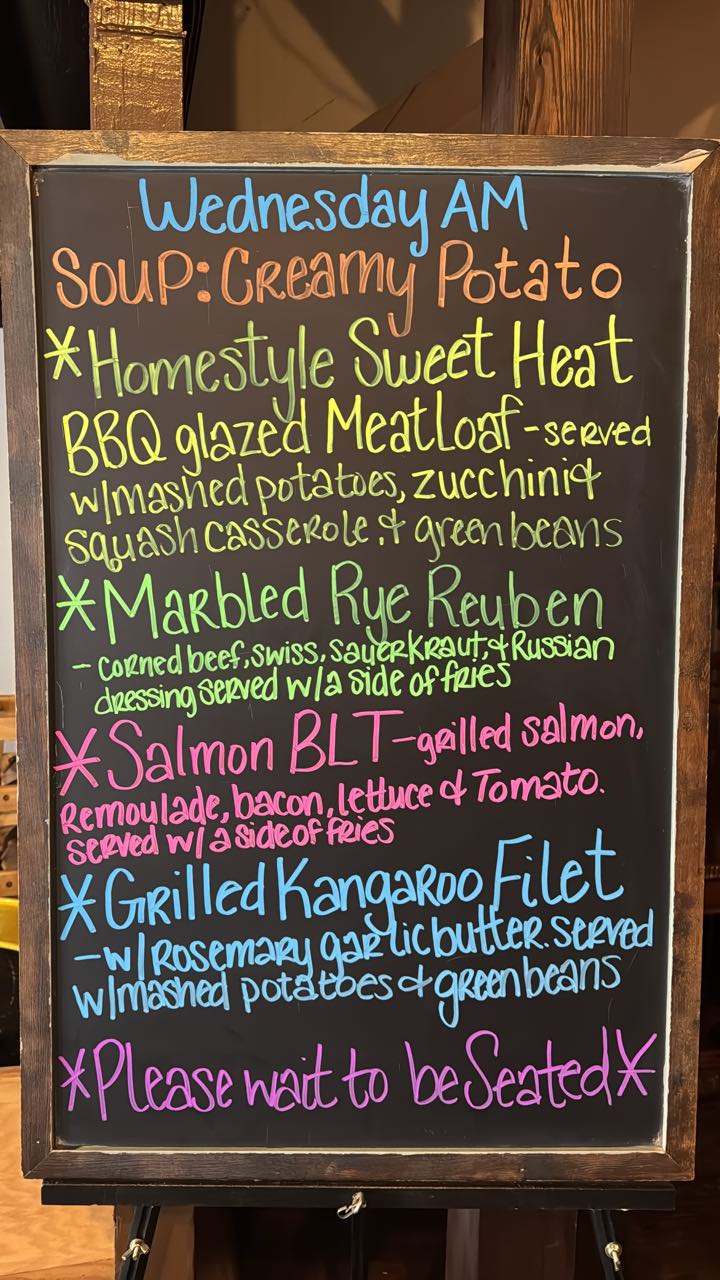 Wednesday AM
Soup: Creamy Potato
*Homestyle Sweet Heat
BBQ glazed MeatLoaf - served
w/mashed potatoes, zucchini &
squash casserole, & green beans
*Marbled Rye Reuben
- corned beef, swiss, sauerkraut, & Russian
dressing served w/ a side of fries
*Salmon BLT - grilled salmon,
Remoulade, bacon, lettuce & Tomato.
served w/ a side of fries
*Grilled Kangaroo Filet
- w/ Rosemary garlic butter. served
w/mashed potatoes & green beans
*Please wait to be Seated*